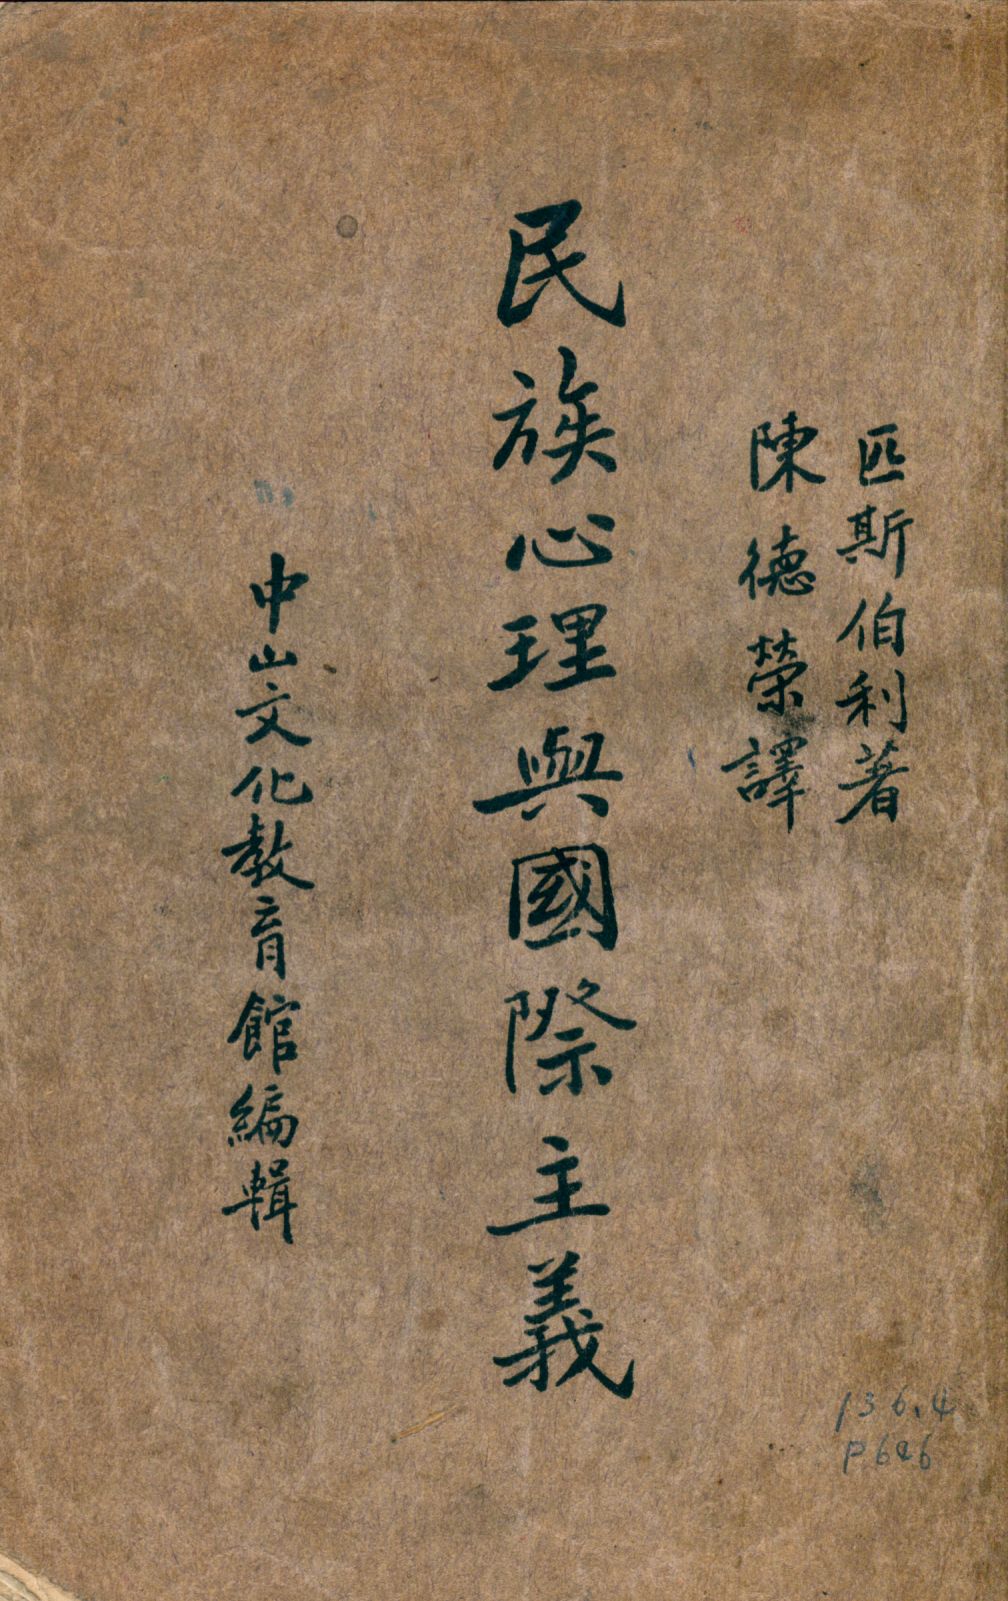 匹斯伯利著
陳德榮譯
民族心理與國際主義
中山文化教育館編輯
136.4